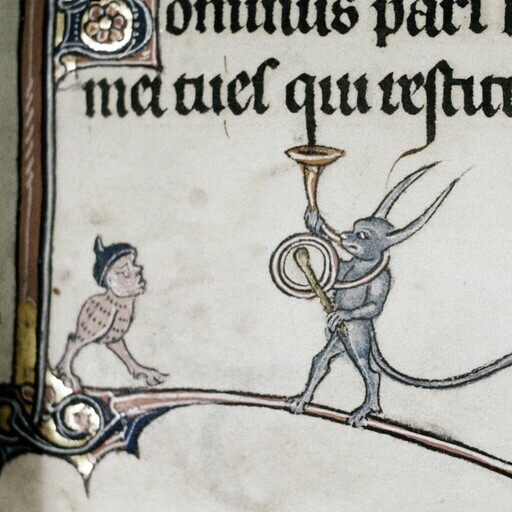 Dominus pars h
mei tu es qui restitu